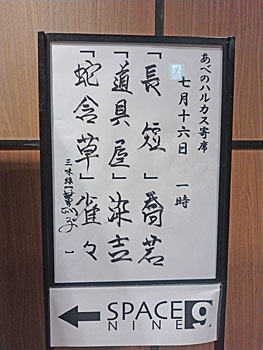 あべのハルカス寄席
七月十六日 一時
「長短」喬若
「道具屋」染吉
「蛇含草」雀々
三味線
SPACE
NINE 9